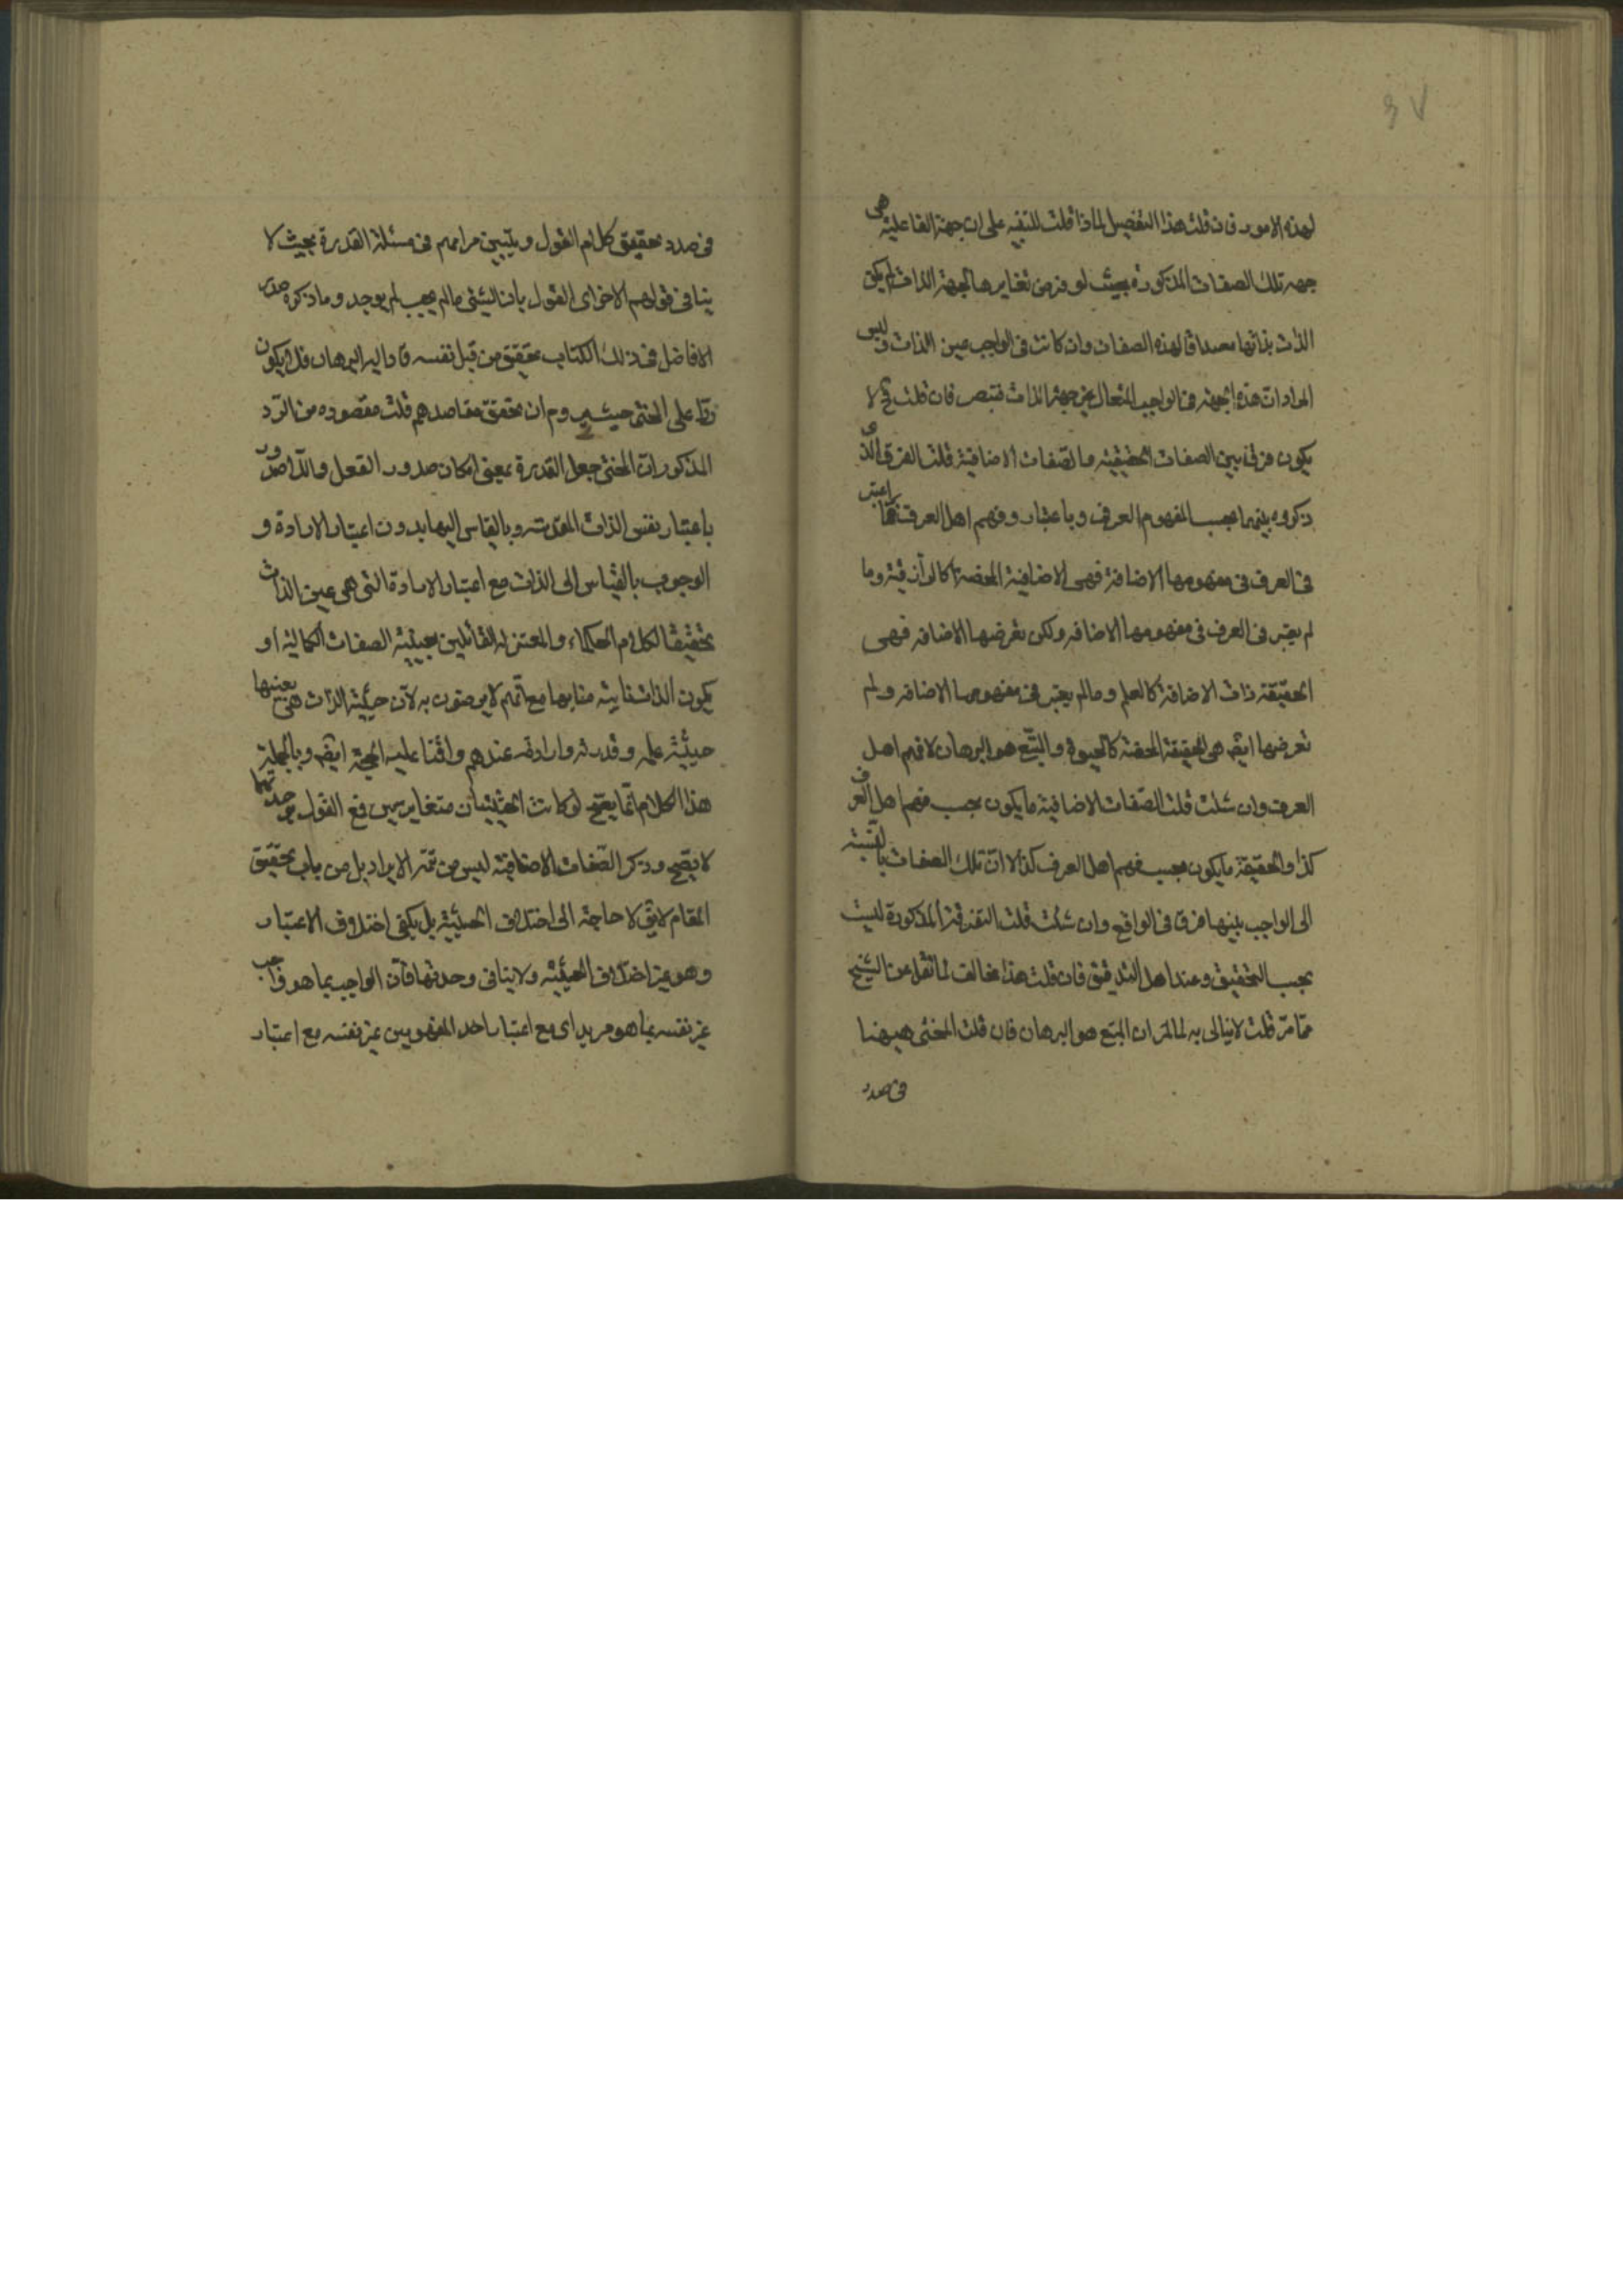 ٣٧
لهذه الامور فان قلت هذا التفصيل لماذا قلت للتنبيه على ان جهة الفاعلية هى
جهه تلك الصفات المذكورة بحيث لو فرض تغايرها لجهة الذات لم يكن
الذات بذاتها مصداقا لهذه الصفات وان كانت فى الواجب عين الذات وليس
المراد ان هذه الجهة فى الواجب المتعال غير جهة الذات فتبصر فان قلت فح لا
يكون فرق بين الصفات الحقيقيه والصفات الاضافية قلت الفرق الذى
ذكروه بينهما بحسب المفهوم العرفى وباعتبار وفهم اهل العرف فما اعتبر
فى العرف فى مفهومها الاضافة فهى الاضافية المحضة كالرازقية وما
لم يعتبر فى العرف فى مفهومها الاضافه ولكن تعرضها الاضافه فهى
الحقيقة ذات الاضافة كالعلم ومالم يعتبر فى مفهومها الاضافه ولم
تعرضها ايضه هى الحقيقة المحضة كالحيوة والمتبع هو البرهان لا فهم اهل
العرف وان شئت قلت الصفات الاضافية ما يكون بحسب فهم اهل العرف
كذا والحقيقة ما يكون بحسب فهم اهل العرف كذا لا ان تلك الصفات بالنسبة
الى الواجب بينها فرق فى الواقع وان شئت قلت التفرقة المذكورة ليست
بحسب التحقيق وعند اهل التدقيق فان قلت هذا مخالف لما نقل عن الشيخ
مما مر قلت لا نبالى به لما مر ان المتبع هو البرهان فان قلت المحشى هيهنا
فى صدد
فى صدد تحقيق كلام القول وتبيين مرامهم فى مسئلة القدرة بحيث لا
ينافى قولهم الاخر اى القول بان الشئ مالم يجب لم يوجد وما ذكره صدر
الافاضل فى ذلك الكتاب تحقيق من قبل نفسه قاد اليه البرهان فلا يكون
ردا على المحشى حيث يروم ان تحقق مقاصدهم قلت مقصوده من الرد
المذكور ان المحشى جعل القدرة بمعنى امكان صدور الفعل واللاصدور
باعتبار نفس الذات المقدسه وبالقياس اليها بدون اعتبار الارادة و
الوجوب بالقياس الى الذات مع اعتبار الارادة التى هى عين الذات
تحقيقا لكلام الحكماء والمعتزله القائلين بعينية الصفات الكمالية او
بكون الذات نايبه منابها مع انهم لا يرضون به لان حيثية الذات هى بعينها
حيثية علمه وقدرته وارادته عندهم واقتنا عليه الحجة ايضه وبالجملة
هذا الكلام انما يصح لو كانت الحيثيتان متغايرتين فمع القول بوحدتهما
لا يصح وذكر الصفات الاضافية ليس من تتمة الايراد بل من باب تحقيق
المقام لا يق لا حاجة الى اختلاف الحيثية بل يكفى اختلاف الاعتبار
وهو غير اختلاف الحيثيه ولا ينافى وحدتها فان الواجب بما هو واجب
غير نفسه بما هو مريد اى مع اعتبار احد المفهومين غير نفسه مع اعتبار